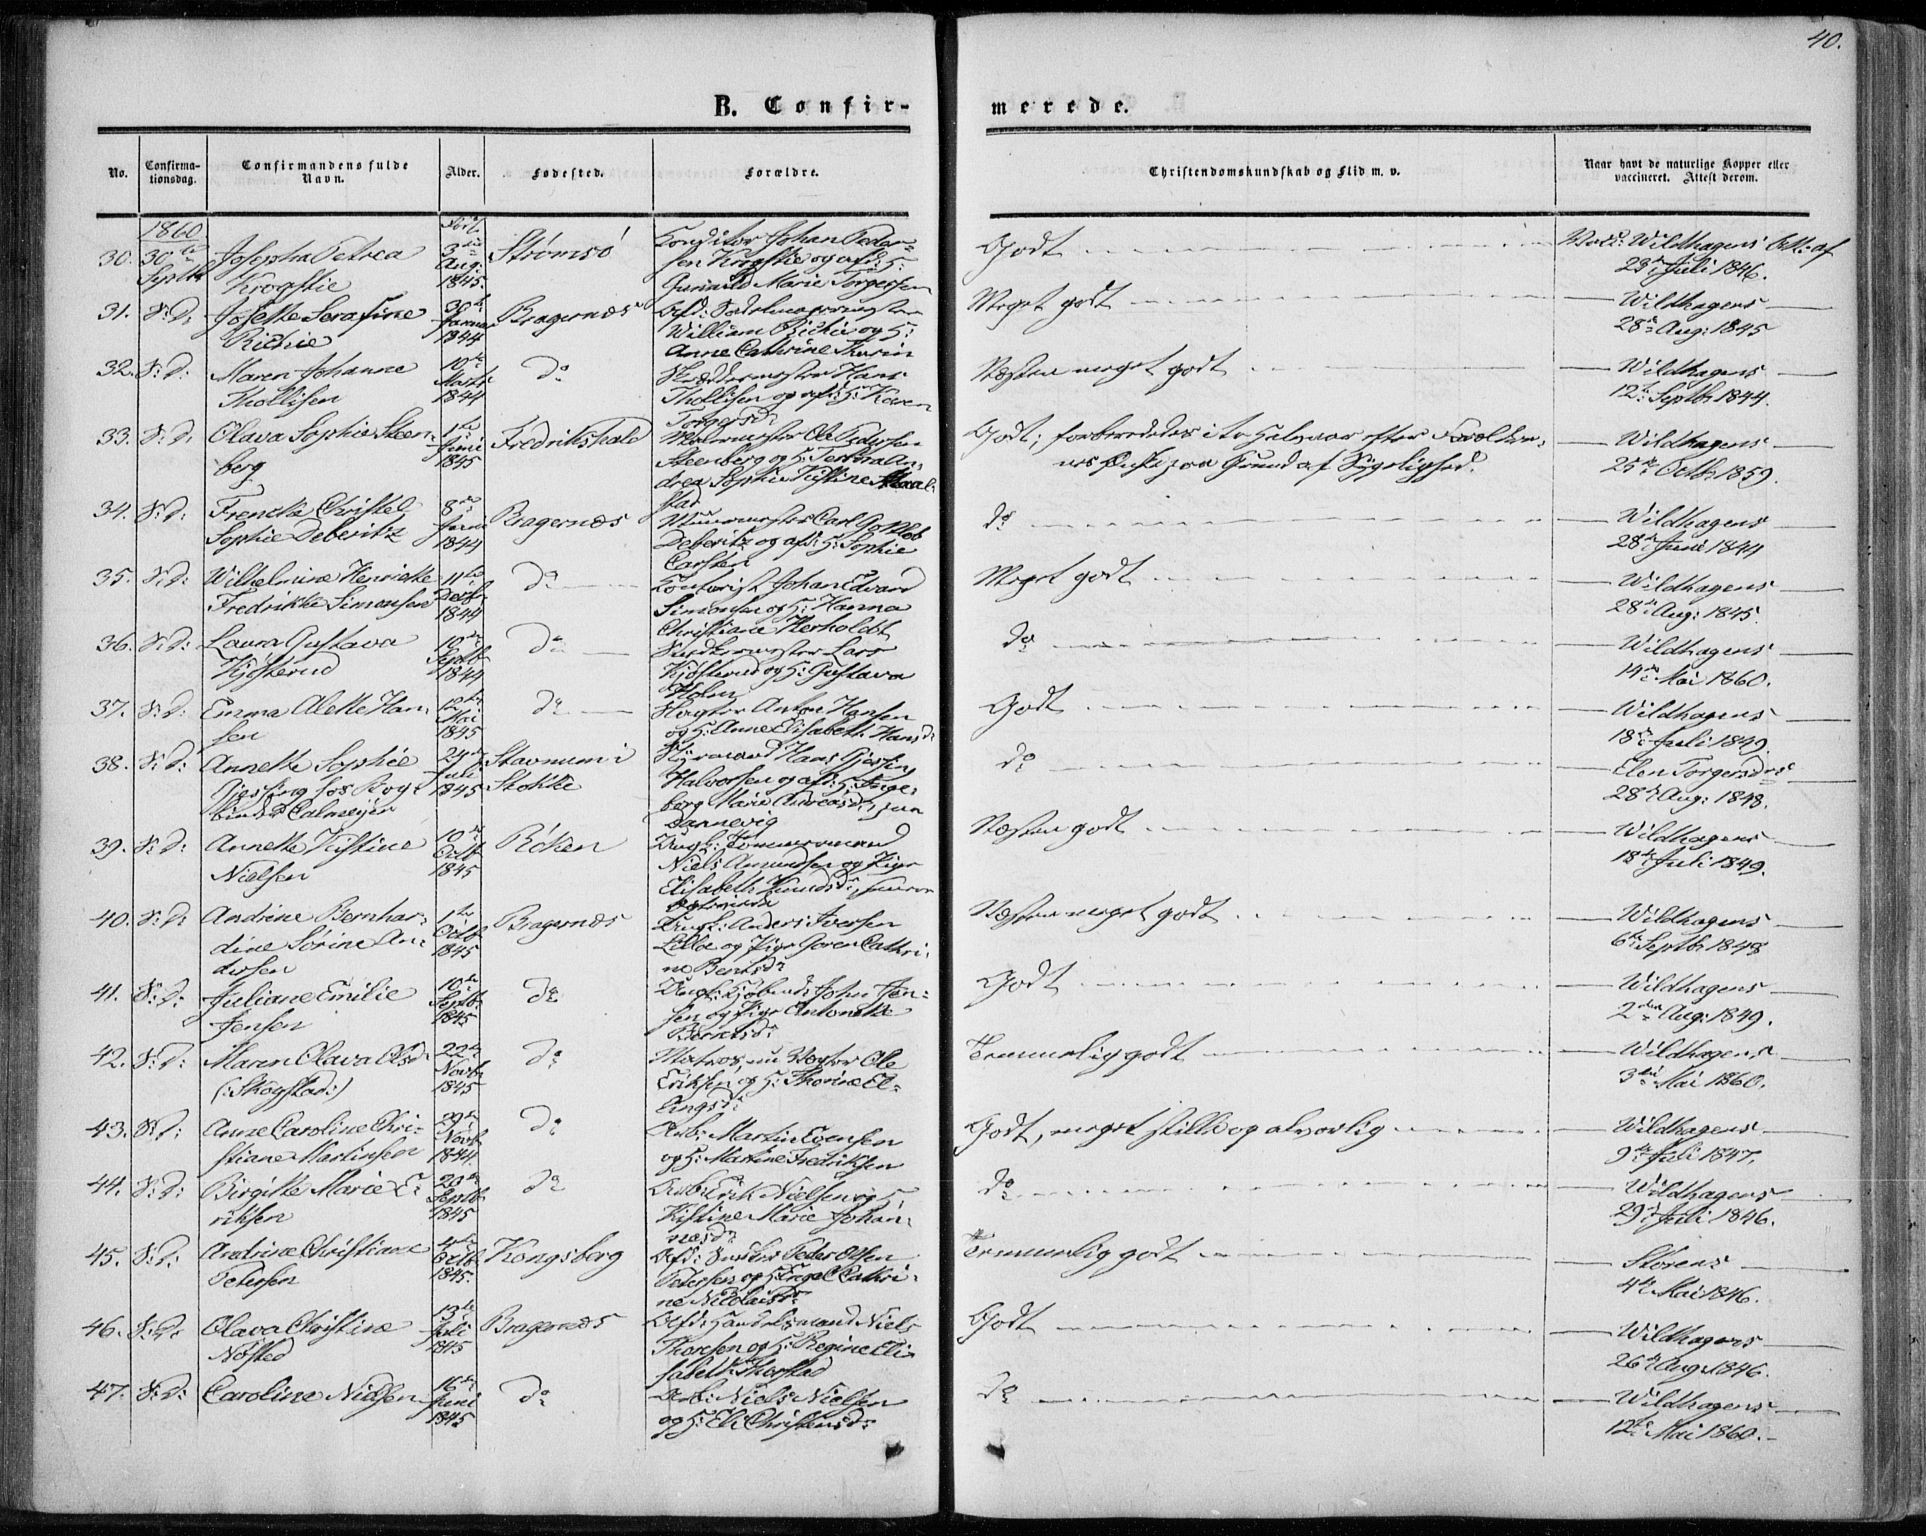 40.
B. Confir-
merede.
No.
Confirma-
tionsdag.
Confirmandens fulde
Navn.
Alder.
Fødested.
Forældre.
Christendomskundskab og Flid m. v.
Naar havt de naturlige Kopper eller
vaccineret. Attest derom.
1860
30. 30te Septb Josepha Petrea Krogstie 3die Aug: 1845 Strømsø Konditor Johan Peder-
sen Krogstie og afd: H:
Gunnild Marie Torgersen
Godt Wildhagens Att: af
23de Juli 1846.
31. S: D: Josette Serafine
Richie
30te Januar 1844
Bragernæs
Afd:
William Richie og H:
Anne Cathrine Thorin
Meget godt
Wildhagens
28de Aug: 1845
32. S: D: Maren Johanne
Thollisen
10de Marts 1844
do
Skræddermester Hans
Thollisen og afd: H: Karen
Torgersdr
Næsten meget godt
Wildhagens
12te Septbr 1844.
33. S: D: Olava Sophie Steen-
berg
1te Juni 1845
Fredrikshald
Malermester Ole Pedersen
Steenberg og H: An-
drea Sophie Kistine
Godt; forberededes i to Halvaar efter Forældre-
nes Ønske paa Grund af Sygelighed.
Wildhagens
25de Octbr 1859.
34. S: D: Christel
Sophie Deberitz
8de 1844
Bragernæs
Carl Gottlob
Deberitz og afd: H: Sophie
Carsten
do
Wildhagens
28de Juni 1844
35. S: D: Wilhelmine Henriette
Fredrikke Simonsen
11te 1844
do
Contorist Johan Edvard
Simonsen og H: Hanna
Christiane Herholdt
Meget godt
Wildhagens
28de Aug: 1845.
36. S: D: Laura Gustava
Kjøsterud
10de Septb 1844
do
Lars
Kjøsterud og H: Gustava
Holm
do
Wildhagens
14de Mai 1860.
37. S: D: Emma Alette Han-
sen
12te Mai 1845
do
Slagter Anton Hansen
og H: Anne Elisabeth Hansdr
Godt
Wildhagens
18de Juli 1849.
38. S: D: Annette Sophie
Gjessing hos Bog-
binder Calmeyer
24de Juli 1845
Stavnum i
Stokke
Styrmand Hans Gjessing
Halvorsen og afd: H: Inge-
berg Marie Andreasdr, paa
Dannevig
do
Elen Torgersdrs
28de Aug: 1848.
39. S: D: Annette Kistine
Nielsen
10de Octb 1845
Röken
Ungk: Tømmermand
Niels Amundsen og Pige
Elisabeth Knudsdr,
Næsten godt
Wildhagens
18de Juli 1849.
40. S: D: Andrine Bernhar-
dine Sörine An-
dersen
1te Octb 1845
Bragernæs
Ungk: Anders Iversen
Lilloe og Pige Goren Cathri-
ne Berntsdr
Næsten meget godt
Wildhagens
6te Septb 1848
41. S: D: Juliane Emilie
Jensen
10de Septb 1845
do
Ungk: John Jen-
sen og Pige Antonette
Berntsdr
Godt
Wildhagens
2den Aug: 1849.
42. S: D: Maren Olava Olsd:
(:Skogstad:)
22de Novb 1845
do
Matros, nu Vægter Ole
Eriksen og H: Thorine El-
lingsdr
Temmelig godt
Wildhagens
3die Mai 1860.
43. S: D: Anne Caroline Chri-
stiane Martinsen
29de Novb 1844
do
Arb: Martin Evensen
og H: Martine Fredriksen
Godt, meget stille og alvorlig
Wildhagens
9de Juli 1847.
44. S: D: Birgitte Marie E-
riksen
20de Septb 1845
do
Arb: Erik Nielsen og H:
Kistine Marie Johan-
nesdr
do
Wildhagens
29de Juli 1846.
45. S: D: Andrine Christiane
Petersen
4de Octb 1845.
Kongsberg
Afd: Peder Olsen
Petersen og H: Engel Cathri-
ne Nilolaisdr
Temmelig godt
Störens
4de Mai 1846.
46. S: D: Olava Christine
Nøsted
13de Juli 1845
Bragernæs
Afd: Handelsmand Niels
Thoresen og H: Regine Eli-
sabeth Thorstad
Godt
Wildhagens
26de Aug. 1846.
47. S: D: Caroline Nielsen
16de Juni 1845
do
Arb: Niels Nielsen
og H: Eli Christensdr
do
Wildhagens
12te Mai 1860.